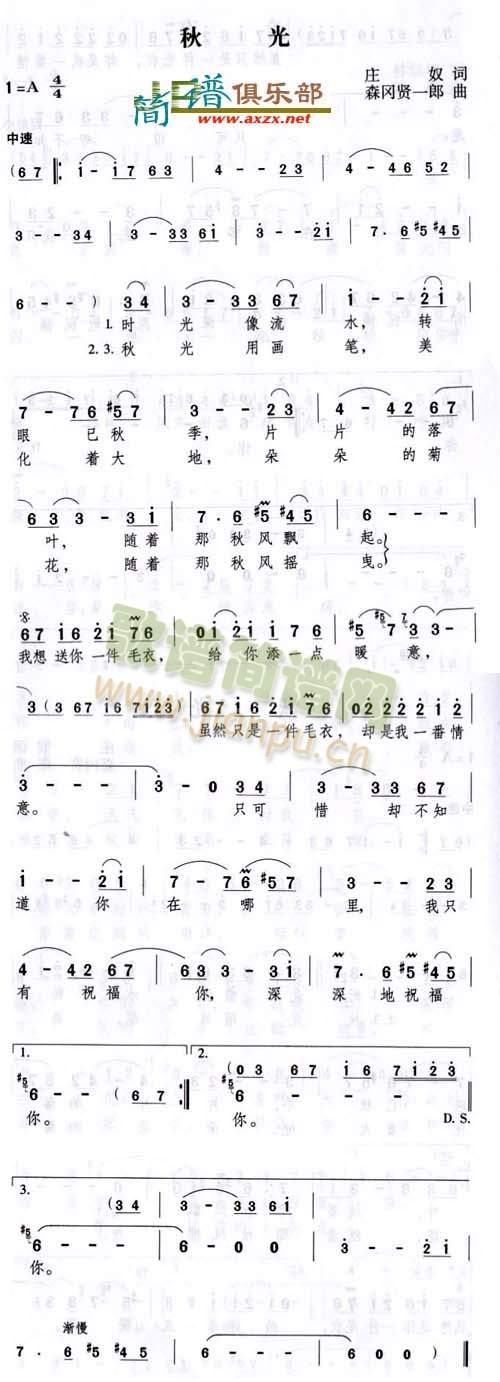 秋 光
1=A 4/4
简谱俱乐部
www.axzx.net
庄 奴 词
森冈贤一郎 曲
中速
(6 7 ‖: i - i 7 6 3 | 4 - - 2 3 | 4 - 4 6 5 2 |
3 - - 3 | 3 - 3 3 6 i | 3 - - 2 i | 7 . 6 #5 #4 5 |
6 - - ) 3 4 | 3 - 3 3 6 7 | 6 - - 2 i |
1. 时 光 像 流 水, 转
2. 3. 秋 光 用 画 笔, 美
7 - 7 6 #5 7 | 3 - - 2 3 | 4 - 4 2 6 7 |
眼 已 秋 季, 片 片 的 落
化 着 大 地, 朵 朵 的 菊
6 3 3 - 3 i | 7 . 6 #5 #4 5 | 6 - - - |
叶, 随 着 那 秋 风 飘 起。
花, 随 着 那 秋 风 摇 曳。
6 7 i 6 2 i 7 6 | 0 i 2 i i 7 6 | #5 7 3 3 - |
我想 送你 一件 毛衣, 给 你 添 一 点 暖 意,
3 (3 6 7 i 6 7 i 2 3) | 6 7 i 6 2 i 7 6 | 0 2 2 2 2 2 i 2 |
虽然 只是 一件 毛衣, 却 是 我 一 番 情
3 - - - | 3 - 0 3 4 | 3 - 3 3 6 7 |
意。 只 可 惜 却 不 知
i - - 2 i | 7 - 7 6 #5 7 | 3 - - 2 3 |
道 你 在 哪 里, 我 只
4 - 4 2 6 7 | 6 3 3 - 3 i | 7 6 #5 #4 5 |
有 祝 福 你, 深 深 地 祝 福
1. 2.
(0 3 6 7 i 6 7 i 2 3)
#5 6 - - (6 7 :‖ #5 6 - - - ‖
你。 你。 D. S.
3.
(3 4 | 3 - 3 3 6 i
#5 6 - - - | 6 - 0 0 | 3 - - 2 i |
你。
渐慢
7 . 6 #5 #4 5 | 6 - - - | 6 0 0 0 ) ‖
歌谱简谱网
www.jianpu.cn